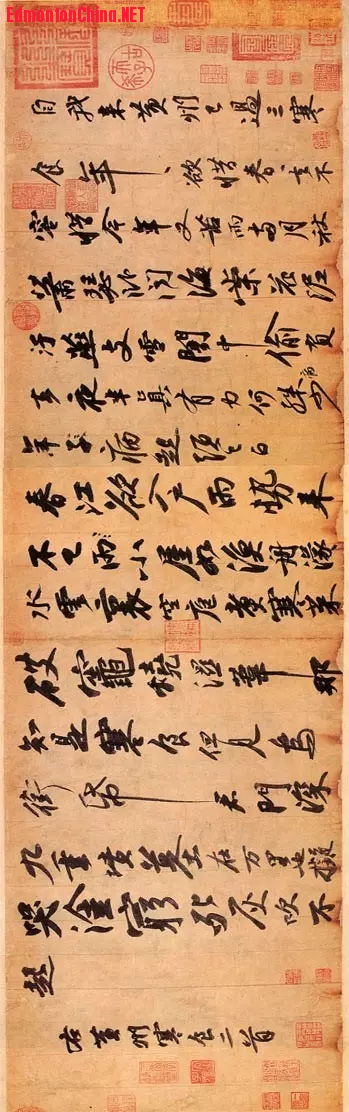 EdmontonChina.NET
自我来黄州已過三寒
食年〻欲惜春〻去不
容惜今年又苦雨兩月秋
蕭瑟卧聞海棠花泥
汙燕支雪闇中偷負
去夜半真有力何殊病少
年子病起頭已白
春江欲入户雨勢來
不已雨小屋如漁舟濛〻
水雲裏空庖煮寒菜
破竈燒濕葦那
知是寒食但見烏
銜帋君門深
九重墳墓在万里也擬
哭塗窮死灰吹不
起
右黄州寒食二首